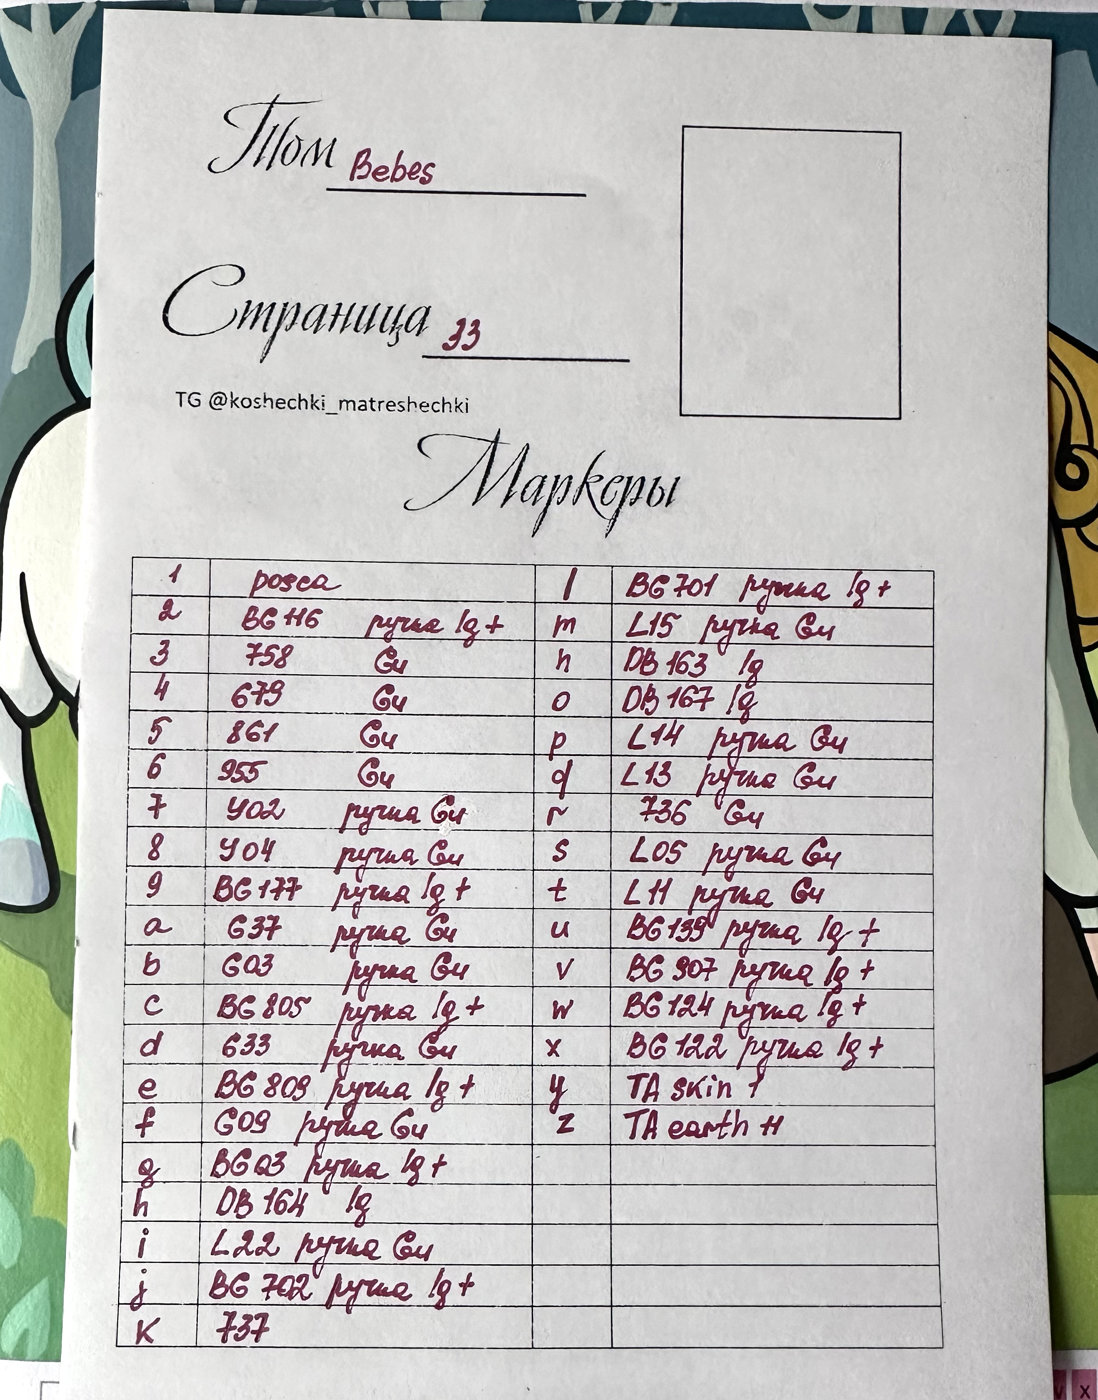 Том Bebes
Страница 33
TG @koshechki_matreshechki
Маркеры
1 posca
2 BG 116 ручка lg +
3 758 Gu
4 679 Gu
5 861 Gu
6 955 Gu
7 Y02 ручка Gu
8 Y04 ручка Gu
9 BG 177 ручка lg +
a G37 ручка Gu
b G03 ручка Gu
c BG 805 ручка lg +
d G33 ручка Gu
e BG 809 ручка lg +
f G09 ручка Gu
g BG 03 ручка lg +
h DB 164 lg
i L22 ручка Gu
j BG 702 ручка lg +
K 737
l BG 701 ручка lg +
m L15 ручка Gu
n DB 163 lg
o DB 167 lg
p L14 ручка Gu
q L13 ручка Gu
r 736 Gu
s L05 ручка Gu
t L11 ручка Gu
u BG 139 ручка lg +
v BG 907 ручка lg +
w BG 124 ручка lg +
x BG 122 ручка lg +
y TA skin 1
z TA earth 11